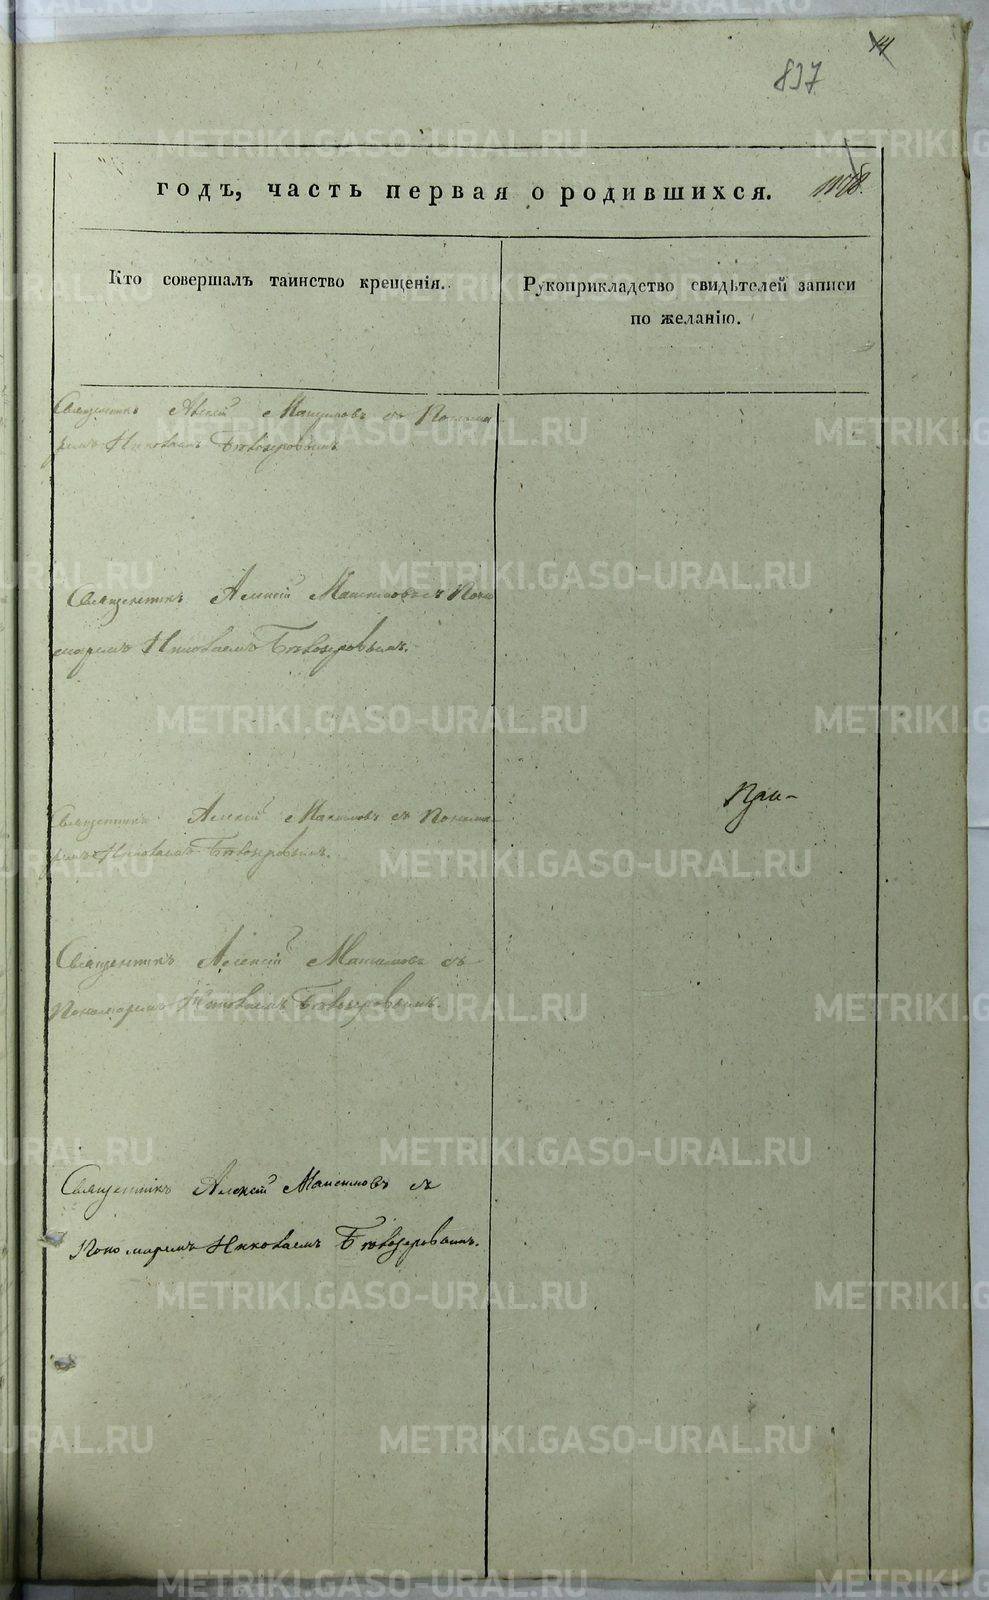 837
годъ, часть первая о родившихся.
Кто совершалъ таинство крещенія.
Рукоприкладство свидѣтелей записи
по желанію.
Священникъ Алексій Максимовъ съ Понома
ремъ Николаемъ Бѣлозеровымъ
Священникъ Алексій Максимовъ съ Поно
маремъ Николаемъ Бѣлозеровымъ.
Священникъ Алексій Максимовъ съ Понома
ремъ Николаемъ Бѣлозеровымъ.
Священникъ Алексій Максимовъ съ
Пономаремъ Николаемъ Бѣлозеровымъ.
Священникъ Алексій Максимовъ съ
Пономаремъ Николаемъ Бѣлозеровымъ.
METRIKI.GASO-URAL.RU